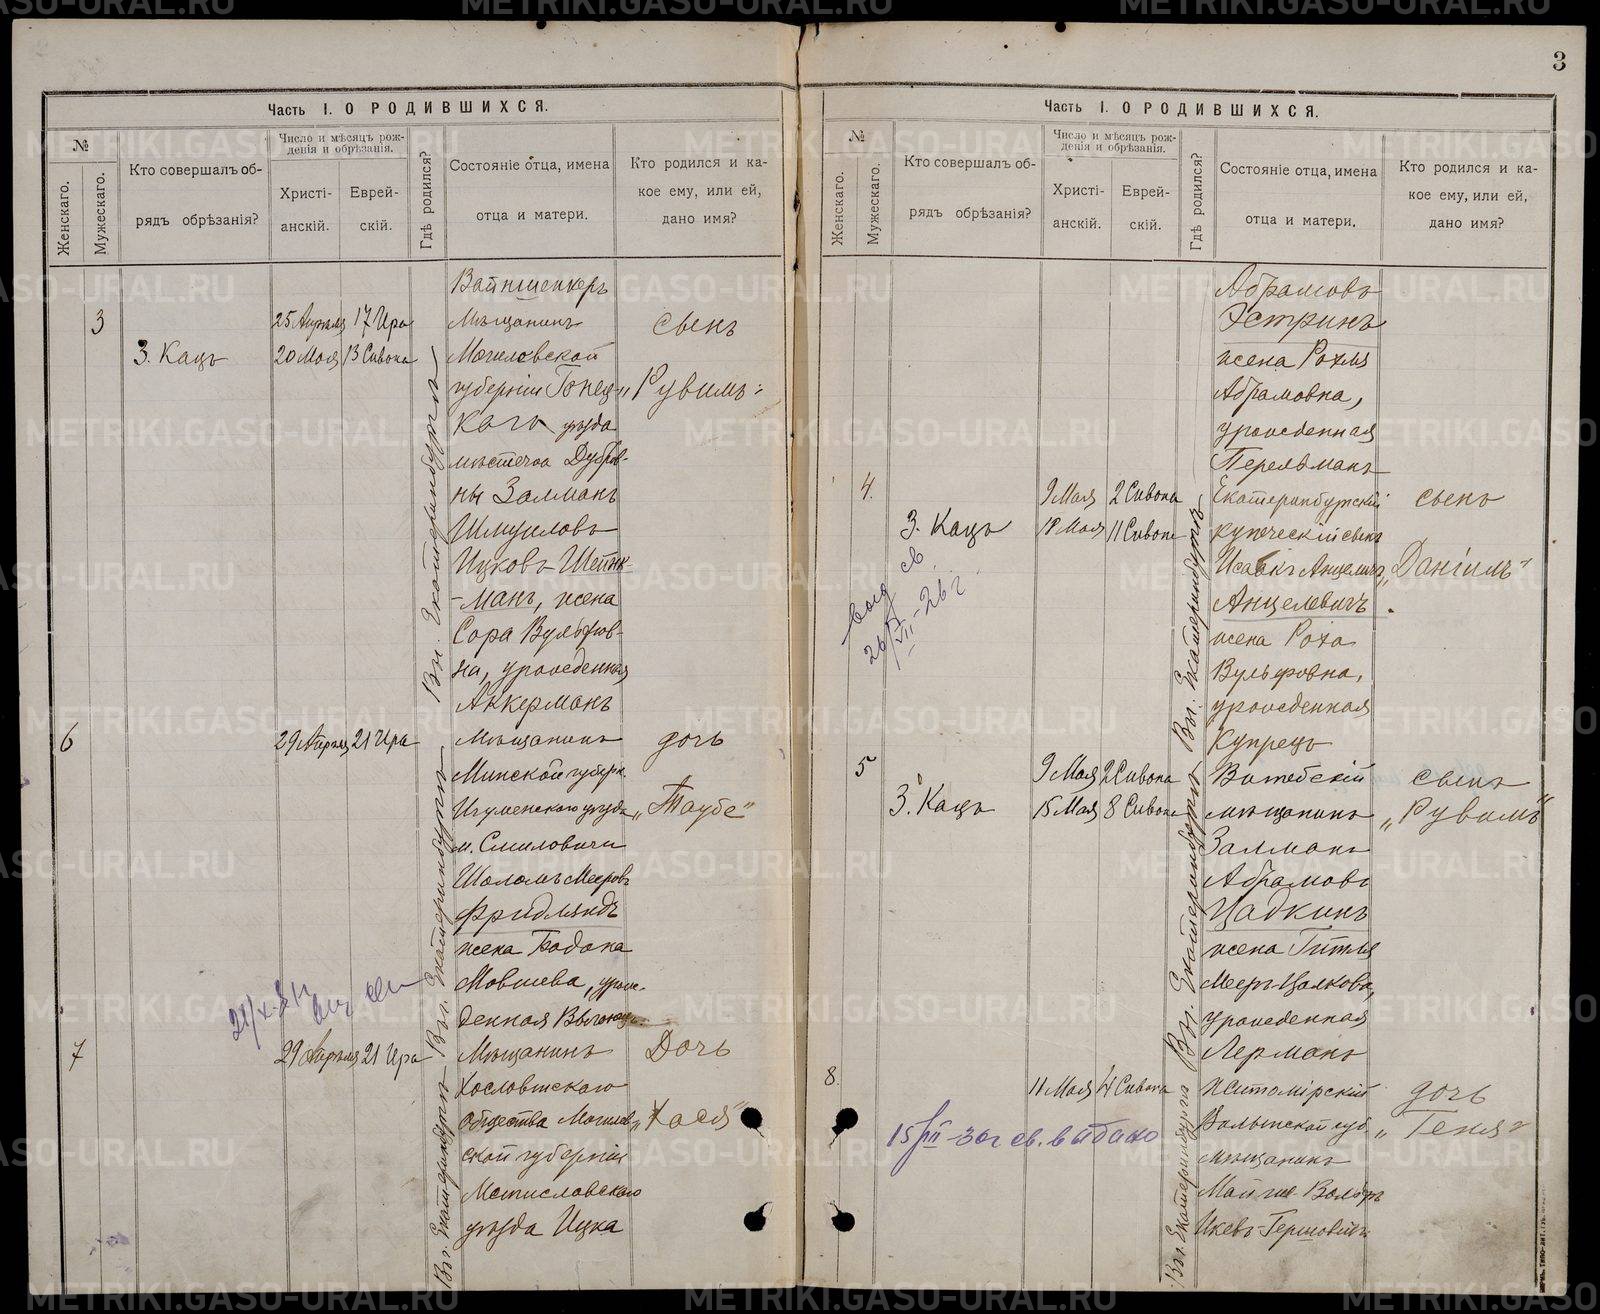 3
Часть I. О РОДИВШИХСЯ.
№
Женскаго.
Мужескаго.
Кто совершалъ об-
рядъ обрѣзанія?
Число и мѣсяцъ рож-
денія и обрѣзанія.
Христі-
анскій.
Еврей-
скій.
Гдѣ родился?
Состояніе отца, имена
отца и матери.
Кто родился и ка-
кое ему, или ей,
дано имя?
Вайншенкеръ
3
25 Апрѣля 17 Ира
Мѣщанинъ
сынъ
З. Кацъ
20 Мая 13 Сивона
Могилевской
губерніи Гонец-
„Рувимъ“
каго уѣзда
мѣстечка Дубров-
ны Залманъ
Шмуиловъ
Ицковъ Шейнк-
-манъ, жена
Сора Вульфов-
на, урожденная
Аккерманъ
Въ г. Екатеринбургѣ
6
29 Апрѣля 21 Ира
Мѣщанинъ
дочь
Минской губерн.
Игуменскаго уѣзда
„Таубе“
м. Смиловичи
Шоломъ Мееровъ
Фридляндъ
жена Бадана
Мовшева, урож-
денная
Въ г. Екатеринбургѣ
7
29 Апрѣля 21 Ира
Мѣщанинъ
Дочь
Хославтскаго
общества Могилев-
„Хася“
ской губерніи
Мстиславскаго
уѣзда Ицка
Въ г. Екатеринбургѣ
Часть I. О РОДИВШИХСЯ.
№
Женскаго.
Мужескаго.
Кто совершалъ об-
рядъ обрѣзанія?
Число и мѣсяцъ рож-
денія и обрѣзанія.
Христі-
анскій.
Еврей-
скій.
Гдѣ родился?
Состояніе отца, имена
отца и матери.
Кто родился и ка-
кое ему, или ей,
дано имя?
Абрамовъ
Эстринъ
жена Рохля
Абрамовна,
урожденная
Перельманъ
4.
9 Мая 2 Сивона
Екатеринбургскій
сынъ
З. Кацъ
18 Мая 11 Сивона
купеческій сынъ
Исаакъ Анцелевъ
„Даніилъ“
Анцелевичъ
жена Роха
Вульфовна,
урожденная
Купрецъ
Въ г. Екатеринбургѣ
выд св.
26/VII-26 г.
5
9 Мая 2 Сивона
Витебскій
сынъ
З. Кацъ
15 Мая 8 Сивона
мѣщанинъ
„Рувимъ“
Залманъ
Абрамовъ
Цадкинъ
жена Гитля
Мееръ-Цалкова,
урожденная
Лерманъ
Въ г. Екатеринбургѣ
8.
11 Мая 4 Сивона
Житомірскій
дочь
Волынской губ
„Геня“
мѣщанинъ
Вольфъ
Ицевъ-Гершовичъ
Въ г. Екатеринбургѣ
15/III-30 г св. выдано